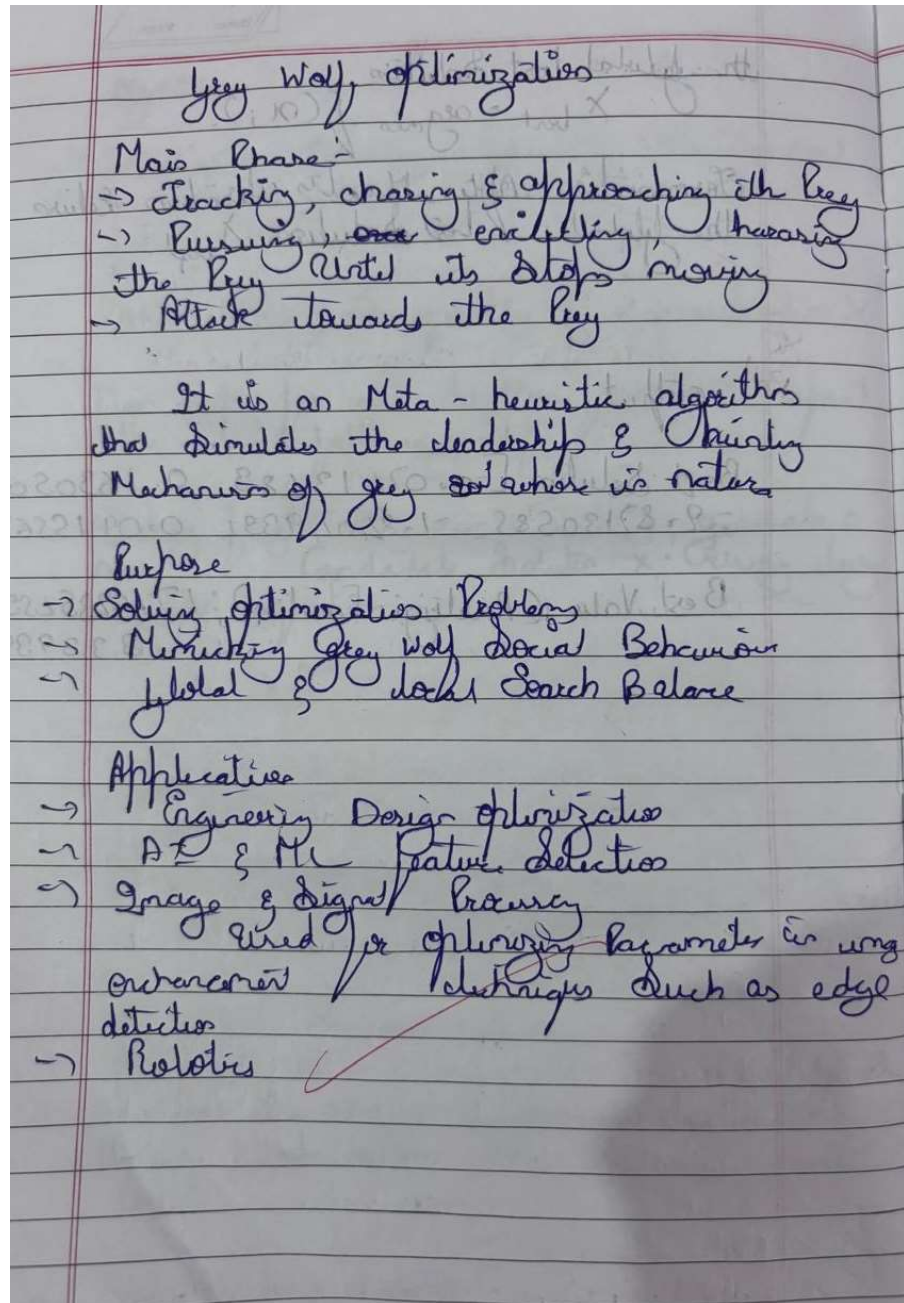 Grey Wolf optimization
Main Phase:-
-> Tracking, chasing & approaching the Prey
-> Pursuing, encircling, harasing
the Prey Until its Stops moving
-> Attack towards the Prey
It is an Meta - heuristic algorithm
that Simulates the leadership &
Mechanism of grey whose is nature
Purpose
-> Solving optimization Problems
-> Mimicking Grey Wolf Social Behaviour
-> Global & local Search Balance
Application
-> Engineering Design optimization
-> AI & ML Feature Selection
-> Image & Signal Processing
Used for optimizing Parameter in
enhancement techniques Such as edge
detection
-> Robotics